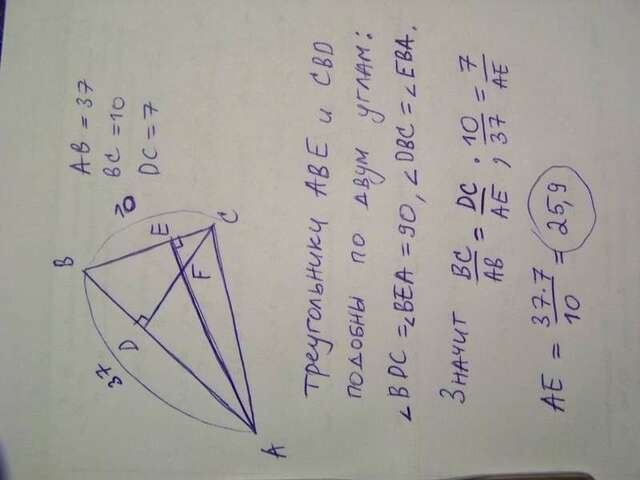 AB = 37
BC = 10
DC = 7
B
37
10
E
C
D
F
A
Треугольники ABE и CBD
подобны по двум углам:
∠BDC = ∠BEA = 90, ∠DBC = ∠EBA.
Значит BC/AB = DC/AE, 10/37 = 7/AE
AE = 37·7/10 = 25,9